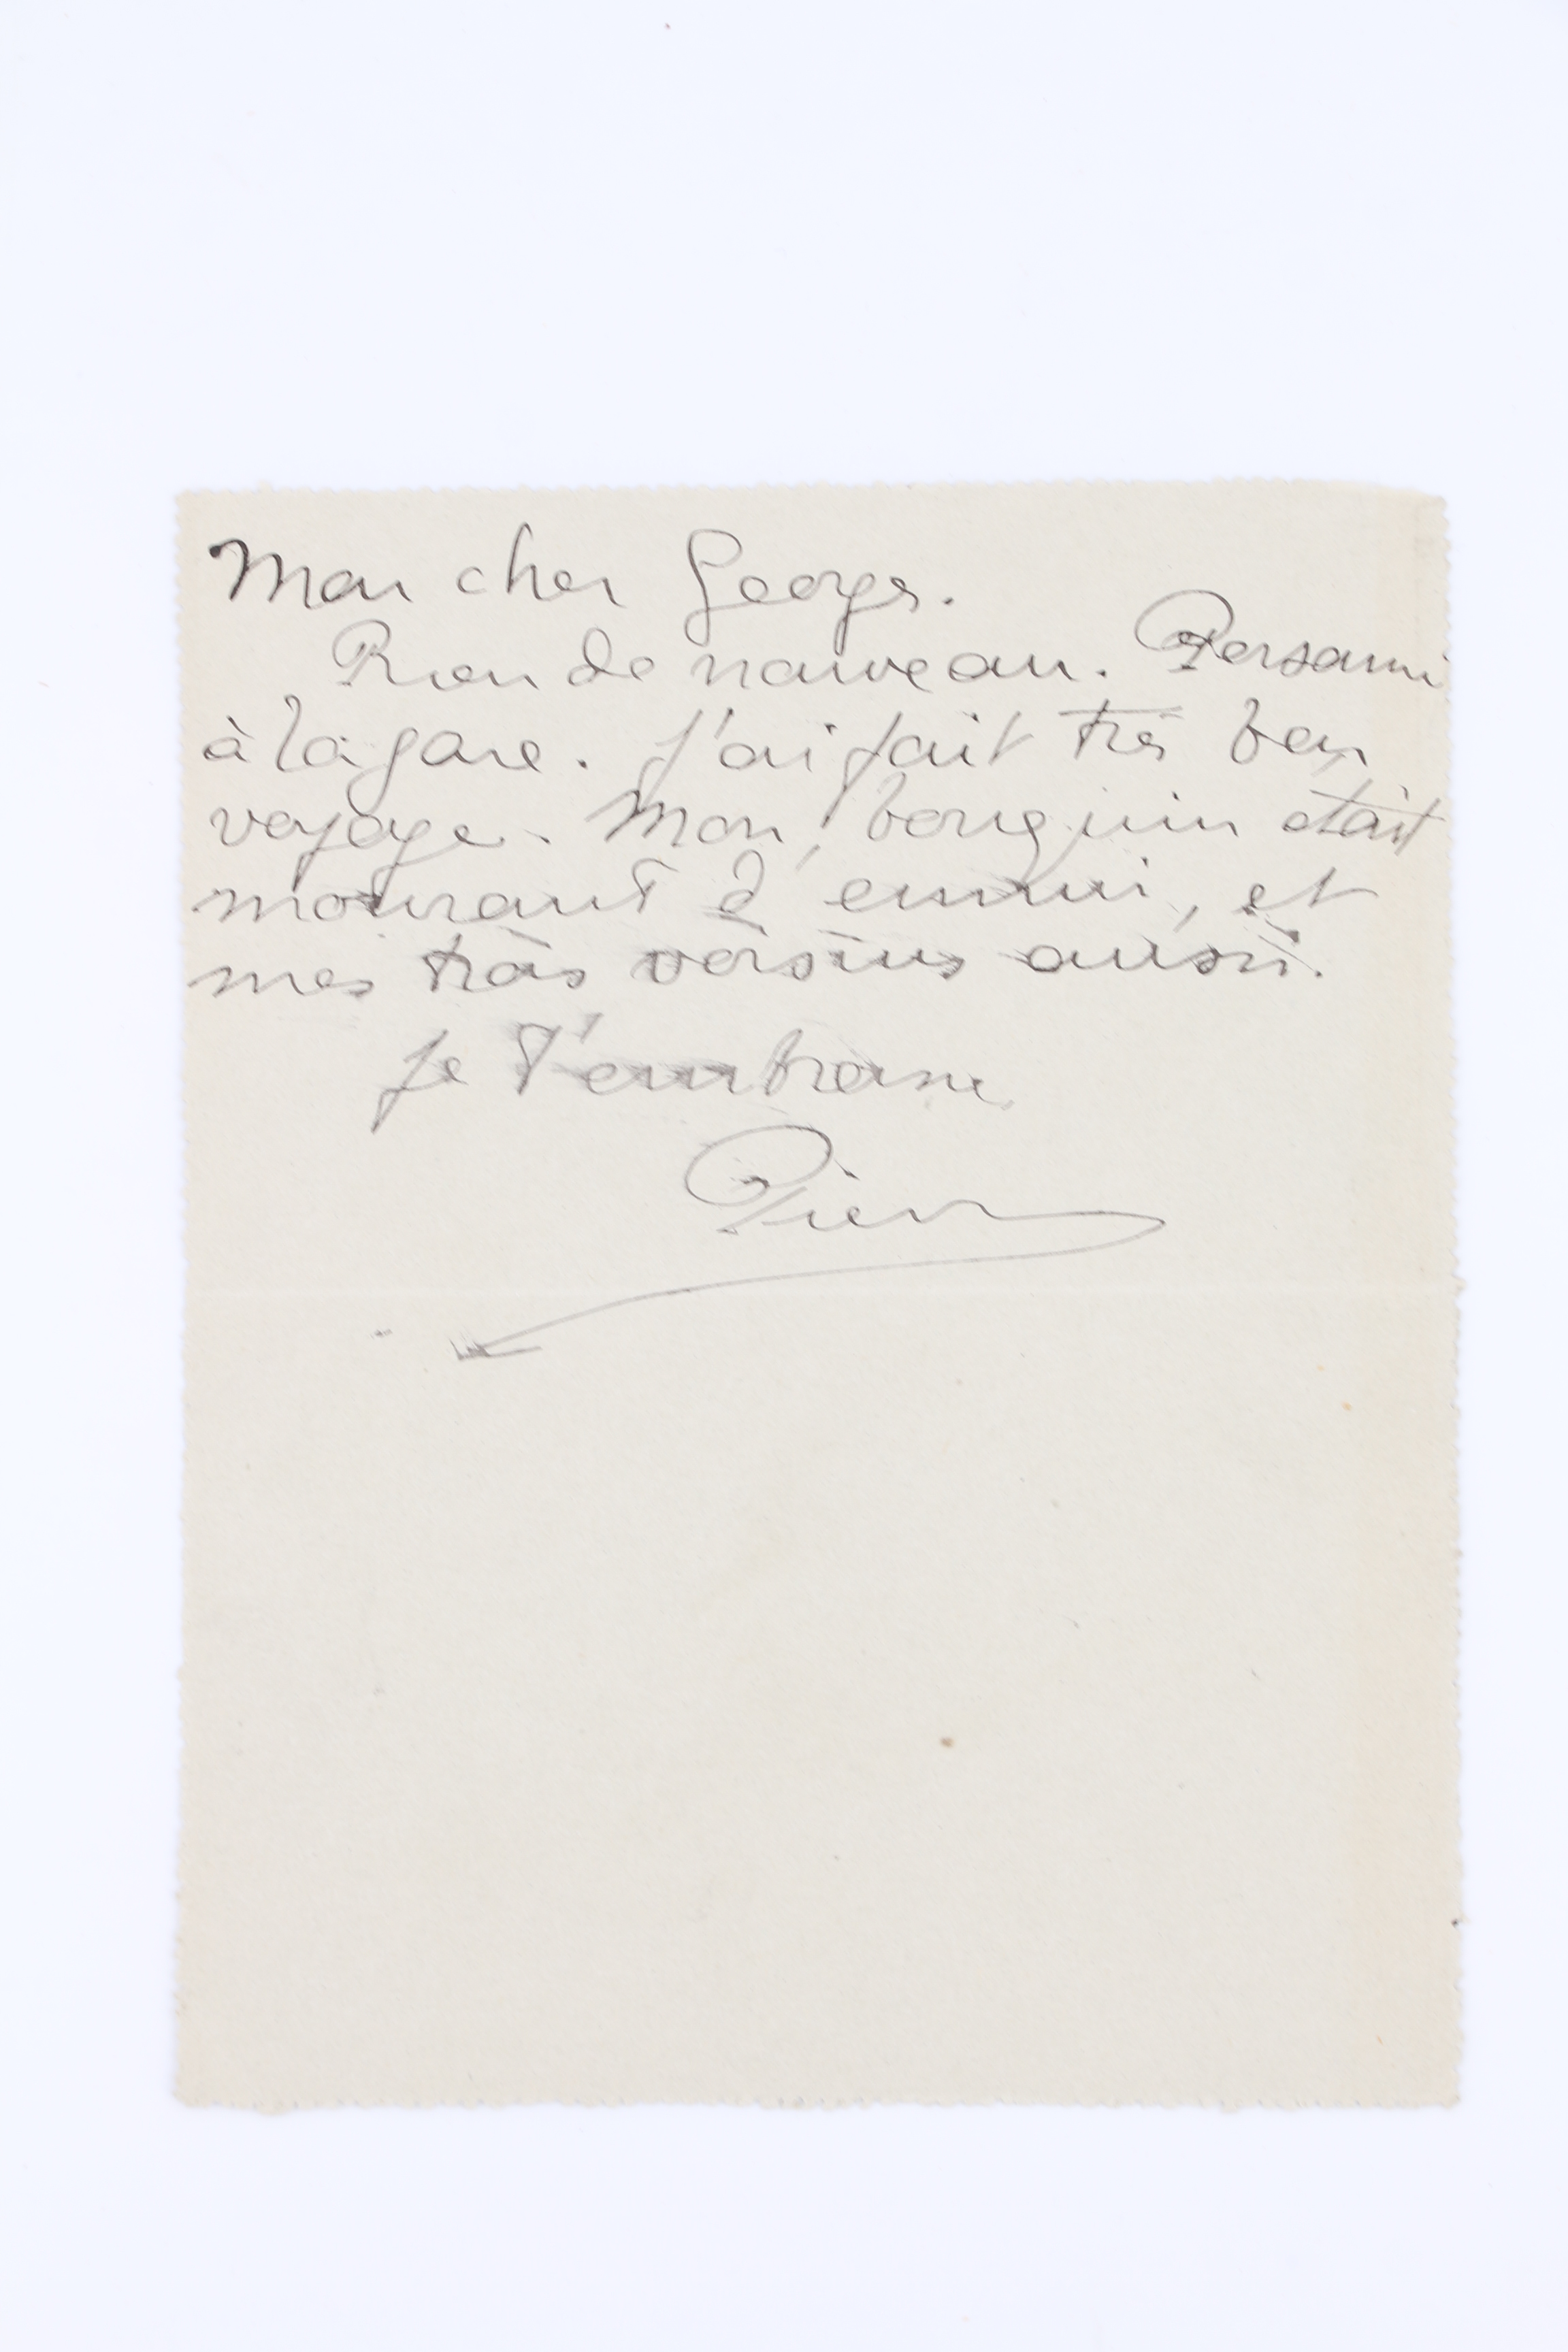 Mon cher George.
Rien de nouveau. Personne
à la gare. J'ai fait très bon
voyage. Mon bouquin était
mourant d'ennui, et
mes trois voisins aussi.
Je t'embrasse
Pierre